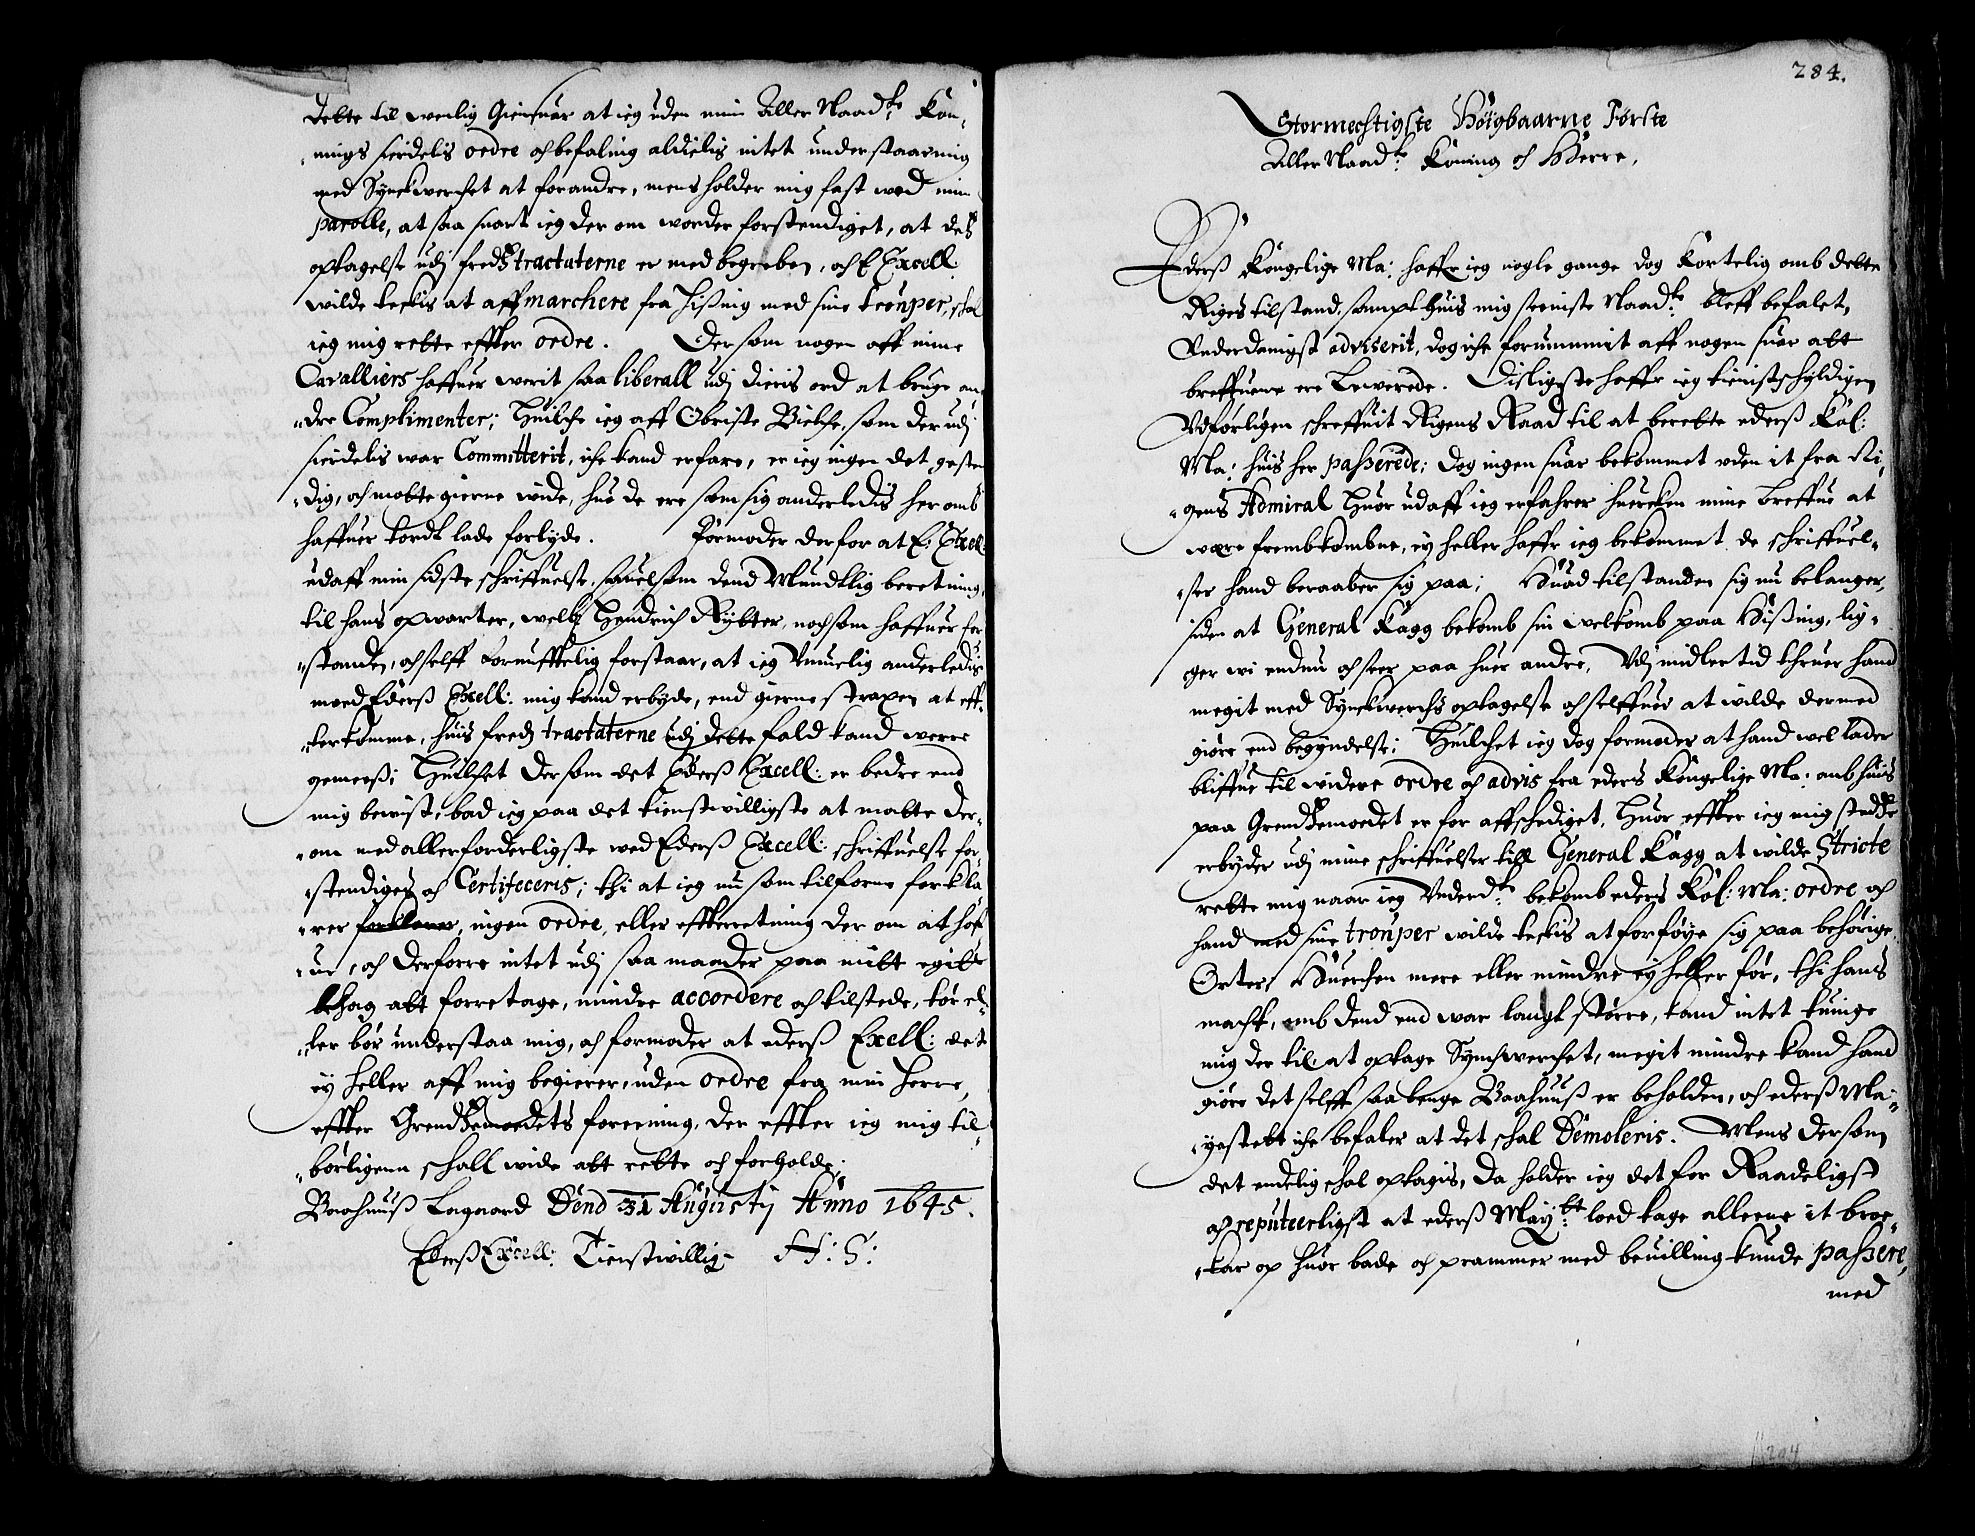 dette til wenlig Giensuar at ieg uden min Aller Naad:ste Kon-
nings sierdelis ordre och befaling aldielis intet understaar mig
med Synckwerchet at forandre, mens holder mig fast wed min
parolle, at saa snart ieg der om worder forstendiget, at dets
optagelse udj freds tractaterne er med begreben, och E Excell:
wilde teckis at aff marchere fra Hißing med sine trouper, skal
ieg mig rette effter ordre. Der som nogen aff mine
Cavalliers haffuer werit saa liberall udj dieris ord at bruge an-
dre Complimenter; Huilche ieg aff Obriste Bielche, som der udj
sierdelis war Committerit, iche kand erfare, er ieg ingen det gesten-
dig, och motte gierne wide, huo de ere som sig anderledis her omb
haffuer tordt lade forlyde. Formoder derfor at E: Excell:
udaff min sidste schriffuelse, sauelsom dend Mundtlig beretning,
til hans opwarter, welb: Hendrich Rytter, nochsom haffuer for-
standen, och selff fornufftelig forstaar, at ieg Vmuelig anderledis
moed Ederß Excell: mig kand erbyde, end gierne strax en at eff-
terkomme, huis freds tractaterne udj dette fald kand werre
gemeeß; Huilchet der som det Ederß Excell: er bedre end
mig bewist, bad ieg paa det tienstwilligste at motte der-
om med allerforderligste wed Ederß Excell: schriffuelse for-
stendiges och Certificeris; thi at ieg nu som tilforne forkla-
rer forklarer, ingen ordre, eller effterretning der om at haff-
ue, och derforre intet udj saa maader paa mitt egitt
behag att forretage, mindre accordere och tilstede, tør el-
ler bør understaa mig, och formoder at ederß Exell: det
ey heller aff mig begierer, uden ordre fra min Herre,
effter Grendsemoedets foreening, der effter ieg mig til-
børligenn schall wide att rette och forholde;
Baahuuß Lagaard Dend 31 Augustij Anno 1645.
Ederß Excell: Tienstwillig- H: S:
284.
Stormechtigste Høigbaarne Første
Aller Naad:ste Koning och Herre,
Ederß Kongelige Ma: haffr ieg nogle gange dog kortelig omb dette
Riges tilstand, sampt huis mig seeniste Naad:ste bleff befalet,
Vnderdanigst adviserit, dog iche fornummit aff nogen suar att
breffuene ere Lewerede. Disligste haffr ieg tienistschyldigen
Vdførligen schreffuit Rigens Raad til at berette ederß Kol:
Ma: huis her passerede; Dog ingen suar bekommet uden it fra Ri-
gens Admiral Huor udaff ieg erfahrer huercken mine breffue at
were frembkombne, ey heller haffr ieg bekommet de schriffuel-
ser hand beraaber sig paa; Huad tilstanden sig nu belanger,
siden at General Kagg bekomb sin welkomb paa Hißing, lig-
ger wi endnu och seer paa huer andre, Vdj midler tid thruer hand
megit med Synckwerchs optagelse och selffuer at wilde dermed
giøre end begyndelse; Huilchet ieg dog formoder at hand wel lader
bliffue til widere ordre och advis fra eders Kongelige Ma: omb huis
paa Grendsemoedet er for affschediget, Huor effter ieg mig stedse
erbyder udj mine schriffuelser till General Kagg at wilde Stricte
rette mig naar ieg Vnderd:ste bekomb eders Kol: Ma: ordre och
hand med sine trouper wilde teckis at forføye sig paa behørige
Orter, Huerchen mere eller mindre ey heller før, thi hans
macht, omb dend end war langt større, kand intet tuinge
mig der til at optage Synckwerchet, megit mindre kand hand
giøre det selff saa lenge Baahuuß er beholden, och ederß Ma-
yestett iche befaler at det schal Demoleris. Mens dersom
det endelig schal optagis, da holder ieg det for Raadeligst
och reputeerligst at ederß May:tt loed tage alleene it broe-
kar op huor bade och prammer med beuilling kunde passere,
med